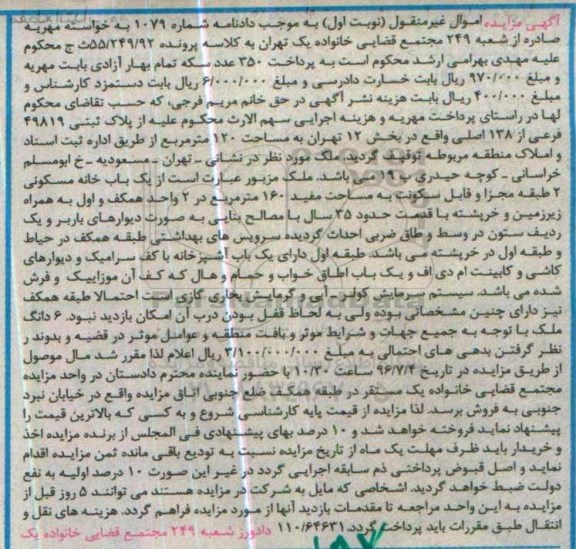 آگهی مزایده اموال غیرمنقول (نوبت اول) به موجب دادنامه شماره ۱۰۷۹ به خواسته مهریه
صادره از شعبه ۲۴۹ مجتمع قضایی خانواده یک تهران به کلاسه پرونده ۵۵/۲۴۹/۹۲ث ج محکوم
علیه مهدی بهرامی ارشد محکوم است به پرداخت ۳۵۰ عدد سکه تمام بهار آزادی بابت مهریه
و مبلغ ۹۷۰/۰۰۰ ریال بابت خسارت دادرسی و مبلغ ۶/۰۰۰/۰۰۰ ریال بابت دستمزد کارشناس و
مبلغ ۴۰۰/۰۰۰ ریال بابت هزینه نشر آگهی در حق خانم مریم فرجی، که حسب تقاضای محکوم
لها در راستای پرداخت مهریه و هزینه اجرایی سهم الارث محکوم علیه از پلاک ثبتی ۴۹۸۱۹
فرعی از ۱۳۸ اصلی واقع در بخش ۱۲ تهران به مساحت ۱۲۰ مترمربع از طریق اداره ثبت اسناد
و املاک منطقه مربوطه توقیف گردید. ملک مورد نظر در نشانی - تهران - مسعودیه - خ ابومسلم
خراسانی - کوچه حیدری پ ۱۹ می باشد. ملک مزبور عبارت است از یک باب خانه مسکونی
۲ طبقه مجزا و قابل سکونت به مساحت مفید ۱۶۰ مترمربع در ۲ واحد همکف و اول به همراه
زیرزمین و خرپشته با قدمت حدود ۳۵ سال با مصالح بنایی به صورت دیوارهای باربر و یک
ردیف ستون در وسط و طاق ضربی احداث گردیده سرویس های بهداشتی طبقه همکف در حیاط
و طبقه اول در خرپشته می باشد. طبقه اول دارای یک باب آشپزخانه با کف سرامیک و دیوارهای
کاشی و کابینت ام دی اف و یک باب اطاق خواب و حمام و هال که کف آن موزاییک و فرش
شده می باشد. سیستم سرمایش کولر - آبی و گرمایش بخاری گازی است احتمالا طبقه همکف
نیز دارای چنین مشخصاتی بوده ولی به لحاظ قفل بودن درب آن امکان بازدید نبود. ۶ دانگ
ملک با توجه به جمیع جهات و شرایط موثر و بافت منطقه و عوامل موثر در قضیه و بدوند ر
نظر گرفتن بدهی های احتمالی به مبلغ ۳/۱۰۰/۰۰۰/۰۰۰ ریال اعلام لذا مقرر شد مال موصول
از طریق مزایده در تاریخ ۹۶/۷/۴ ساعت ۱۰/۳۰ با حضور نماینده محترم دادستان در واحد مزایده
مجتمع قضایی خانواده یک مستقر در طبقه همکف ضلع جنوبی اتاق مزایده واقع در خیابان نبرد
جنوبی به فروش برسد. لذا مزایده از قیمت پایه کارشناسی شروع و به کسی که بالاترین قیمت را
پیشنهاد نماید فروخته خواهد شد و ۱۰ درصد بهای پیشنهادی فی المجلس از برنده مزایده اخذ
و خریدار باید ظرف مهلت یک ماه از تاریخ مزایده نسبت به تودیع باقی مانده ثمن مزایده اقدام
نماید و اصل قبوض پرداختی ذم سابقه اجرایی گردد در غیر این صورت ۱۰ درصد اولیه به نفع
دولت ضبط خواهد گردید. اشخاصی که مایل به شرکت در مزایده هستند می توانند ۵ روز قبل از
مزایده به این واحد مراجعه تا مقدمات بازدید آنها از مورد مزایده فراهم گردد. هزینه های نقل و
انتقال طبق مقررات باید پرداخت گردد. ۱۱۰/۶۴۶۳۱ دادورز شعبه ۲۴۹ مجتمع قضایی خانواده یک